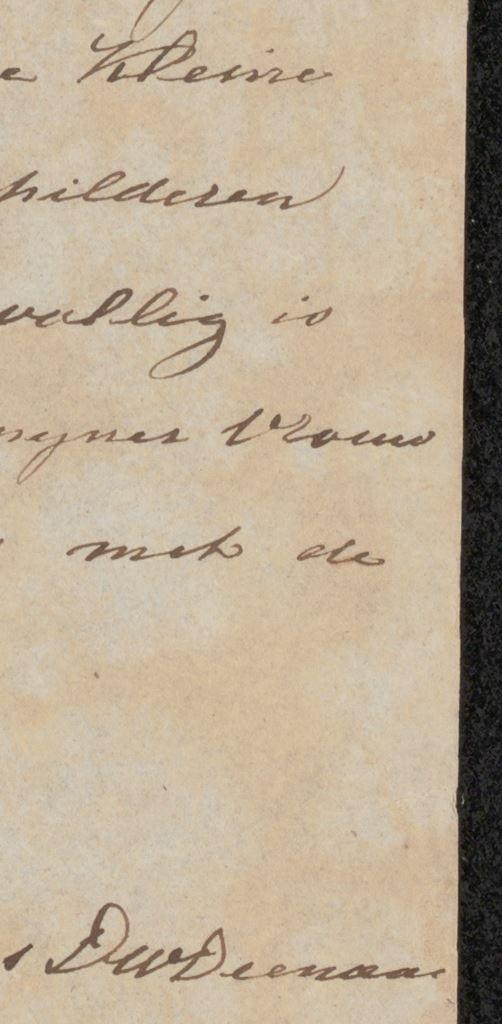 e kleine
hilderen
vallig is
mynes Vrouw
met de
s DW Deenaa